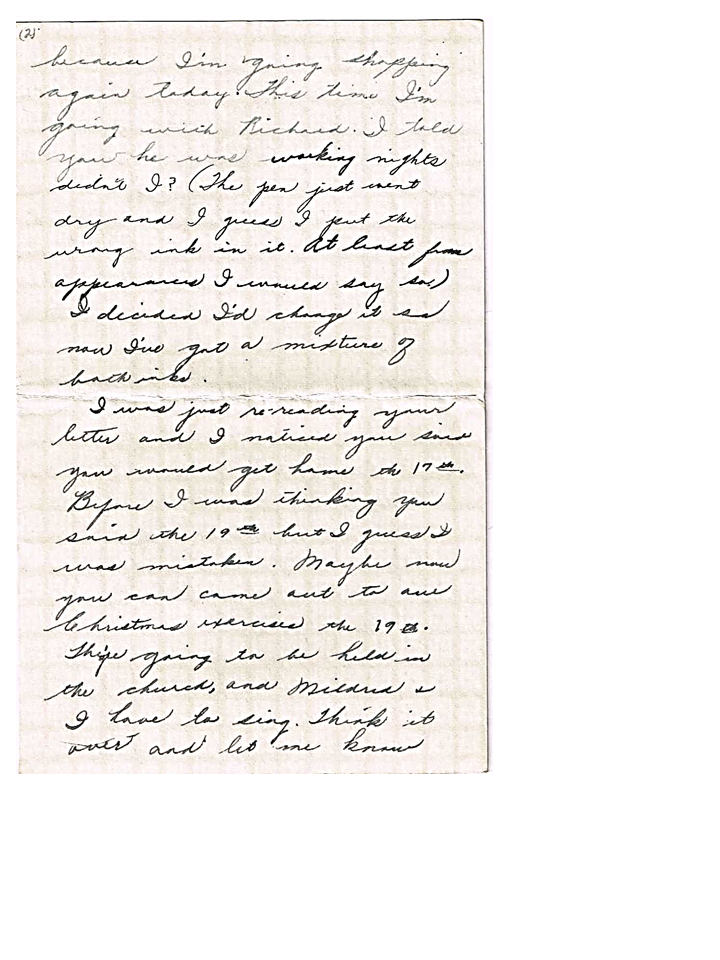 (2)
because I'm going shopping
again today. This time I'm
going with Richard. I told
you he was working nights
didn't I? (The pen just went
dry and I guess I put the
wrong ink in it. At least from
appearances I would say so)
I decided I'd change it so
now I've got a mixture of
both inks.
I was just re-reading your
letter and I noticed you said
you would get home th 17th.
Before I was thinking you
said the 19th but I guess I
was mistaken. Maybe now
you can come out to our
Christmas exercises the 19th.
going to be held in
the church, and Mildred &
I have to sing. Think it
over and let me know